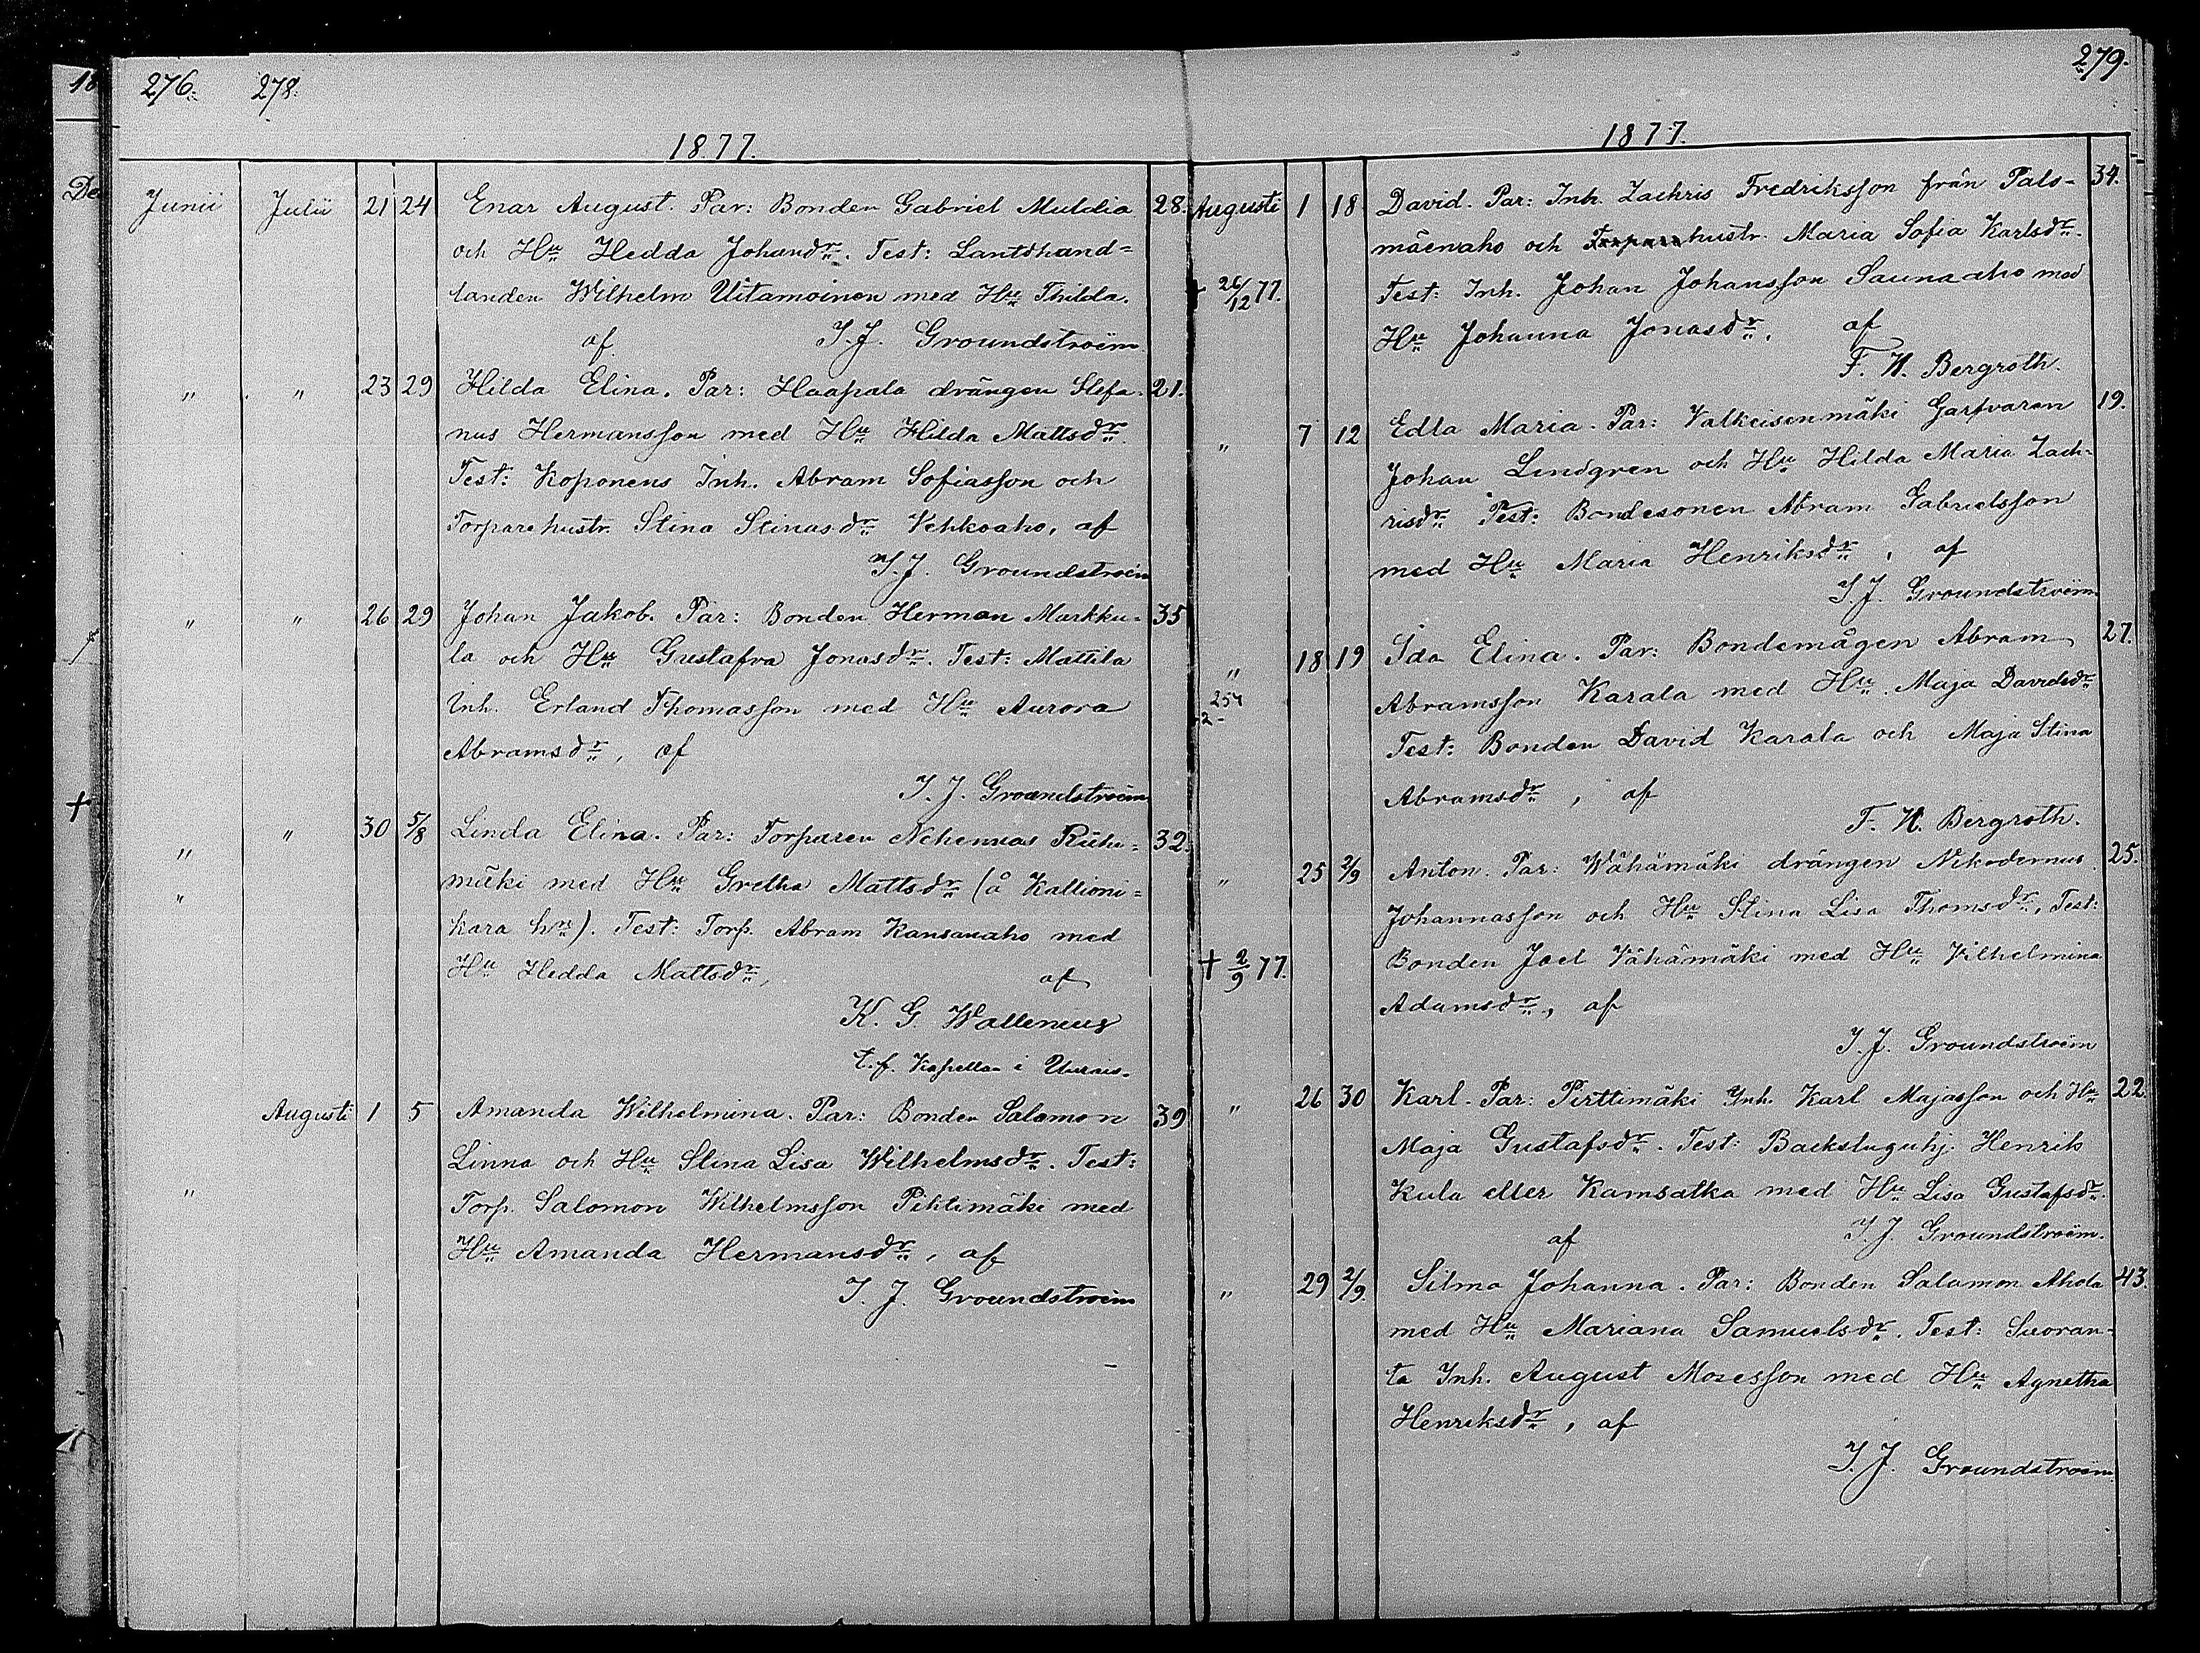 276. 278.
1877.
Junii Julii 21 24 Enar August. Par: Bonden Gabriel Muldia 28.
och Hu Hedda Johansdr. Test: Lantdhand=
landen Wilhelm Uitamoinen med Hu Thilda.
af. I. J. Groundstroëm
" " 23 29 Hilda Elina. Par: Haapala drängen Stefa- 21.
nus Hermansson med Hu Hilda Mattsdr.
Test: Koponens Inh. Abram Sofiasson och
Torparehustr. Stina Stinasdr Vehkoaho, af
I. J. Groundstroëm
" " 26 29 Johan Jakob. Par: Bonden Herman Markku- 35
la och Hu Gustafva Jonasdr. Test: Mattila
Inh. Erland Thomasson med Hu Aurora
Abramsdr, af
I. J. Groundstroëm
" " 30 5/8 Linda Elina. Par: Torparen Nehemias Riihi= 32.
" mäki med Hu Gretha Mattsdr (å Kallioni=
kara hn). Test: Torp. Abram Kansanaho med
Hu Hedda Mattsdr, af
K. G. Wallenius
t. f. Kapellan i
Augusti 1 5 Amanda Wilhelmina. Par: Bonden Salomon 39
Linna och Hu Stina Lisa Wilhelmsdr. Test:
" Torp. Salomon Wilhelmsson Pihtimäki med
Hu Amanda Hermansdr, af
I. J. Groundstroëm
279.
1877.
Augusti 1 18 David. Par: Inh. Zachris Fredriksson från Pals- 34.
mäenaho och hustr. Maria Sofia Karlsdr.
+ 26/12 77. Test: Inh. Johan Johansson Saunaaho med
Hu Johanna Jonasdr. af
F. H. Bergroth.
" 7 12 Edla Maria. Par: Valkeisenmäki Garfvaren 19.
Johan Lindgren och Hu Hilda Maria Zach-
risdr Test: Bondesonen Abram Gabrielsson
med Hu Maria Henriksdr, af
I. J. Groundstroëm
" 18 19 Ida Elina. Par: Bondemågen Abram 27.
254 Abramsson Karala med Hu. Maja Davidsdr
-2- Test: Bonden David Karala och Maja Stina
Abramsdr, af
F. H. Bergroth.
" 25 2/9 Anton. Par: Wähämäki drängen Nikodemus 25.
Johannasson och Hu Stina Lisa Thomsdr, Test:
+ 2/9 77. Bonden Joel Vähämäki med Hu Vilhelmina
Adamsdr, af
I. J. Groundstroëm
" 26 30 Karl. Par: Pirttimäki Inh. Karl Majasson och Hu 22.
Maja Gustafsdr. Test: Backstuguhj. Henrik
Kula eller Kamsatka med Hu Lisa Gustafsdr.
af I. J. Groundstroëm.
" 29 2/9. Silma Johanna. Par: Bonden Salamon Ahola 43.
med Hu Mariana Samuelsdr. Test: Suoran-
ta Inh. August Mosesson med Hu Agnetha
Henriksdr, af
I. J. Groundstroëm